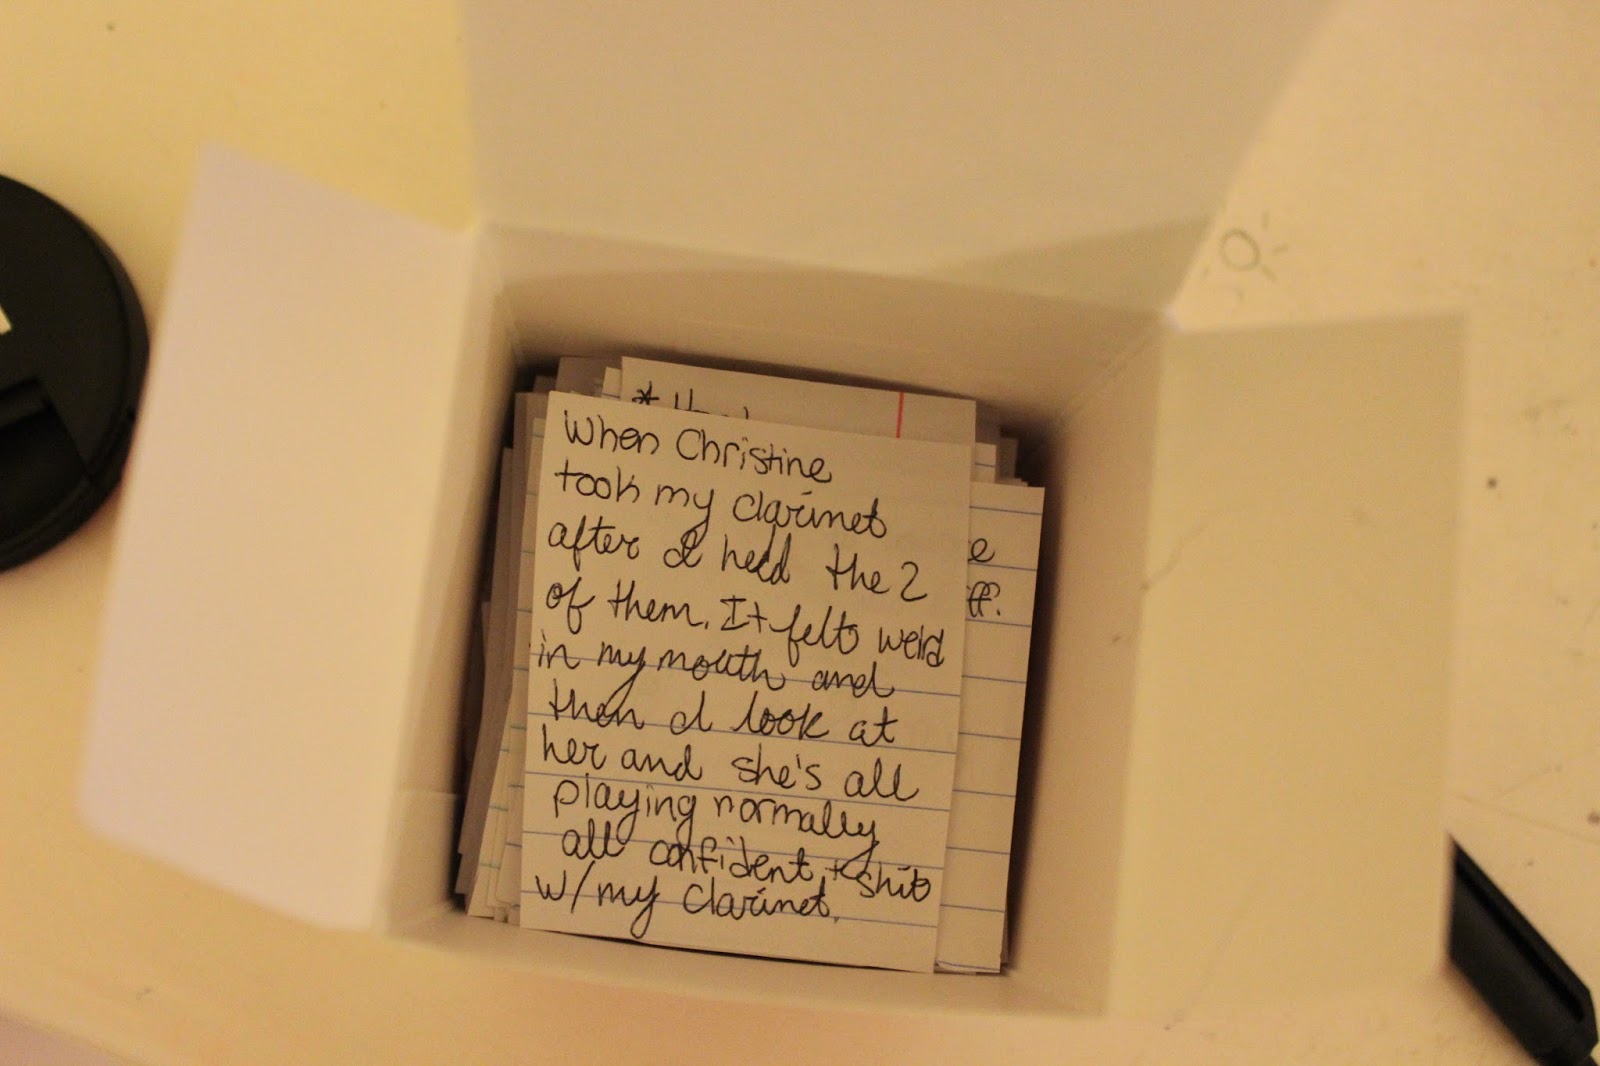 When Christine
took my clarinet
after I held the 2
of them. It felt weird
in my mouth and
then I look at
her and she's all
playing normally
all confident + shit
w/my clarinet.